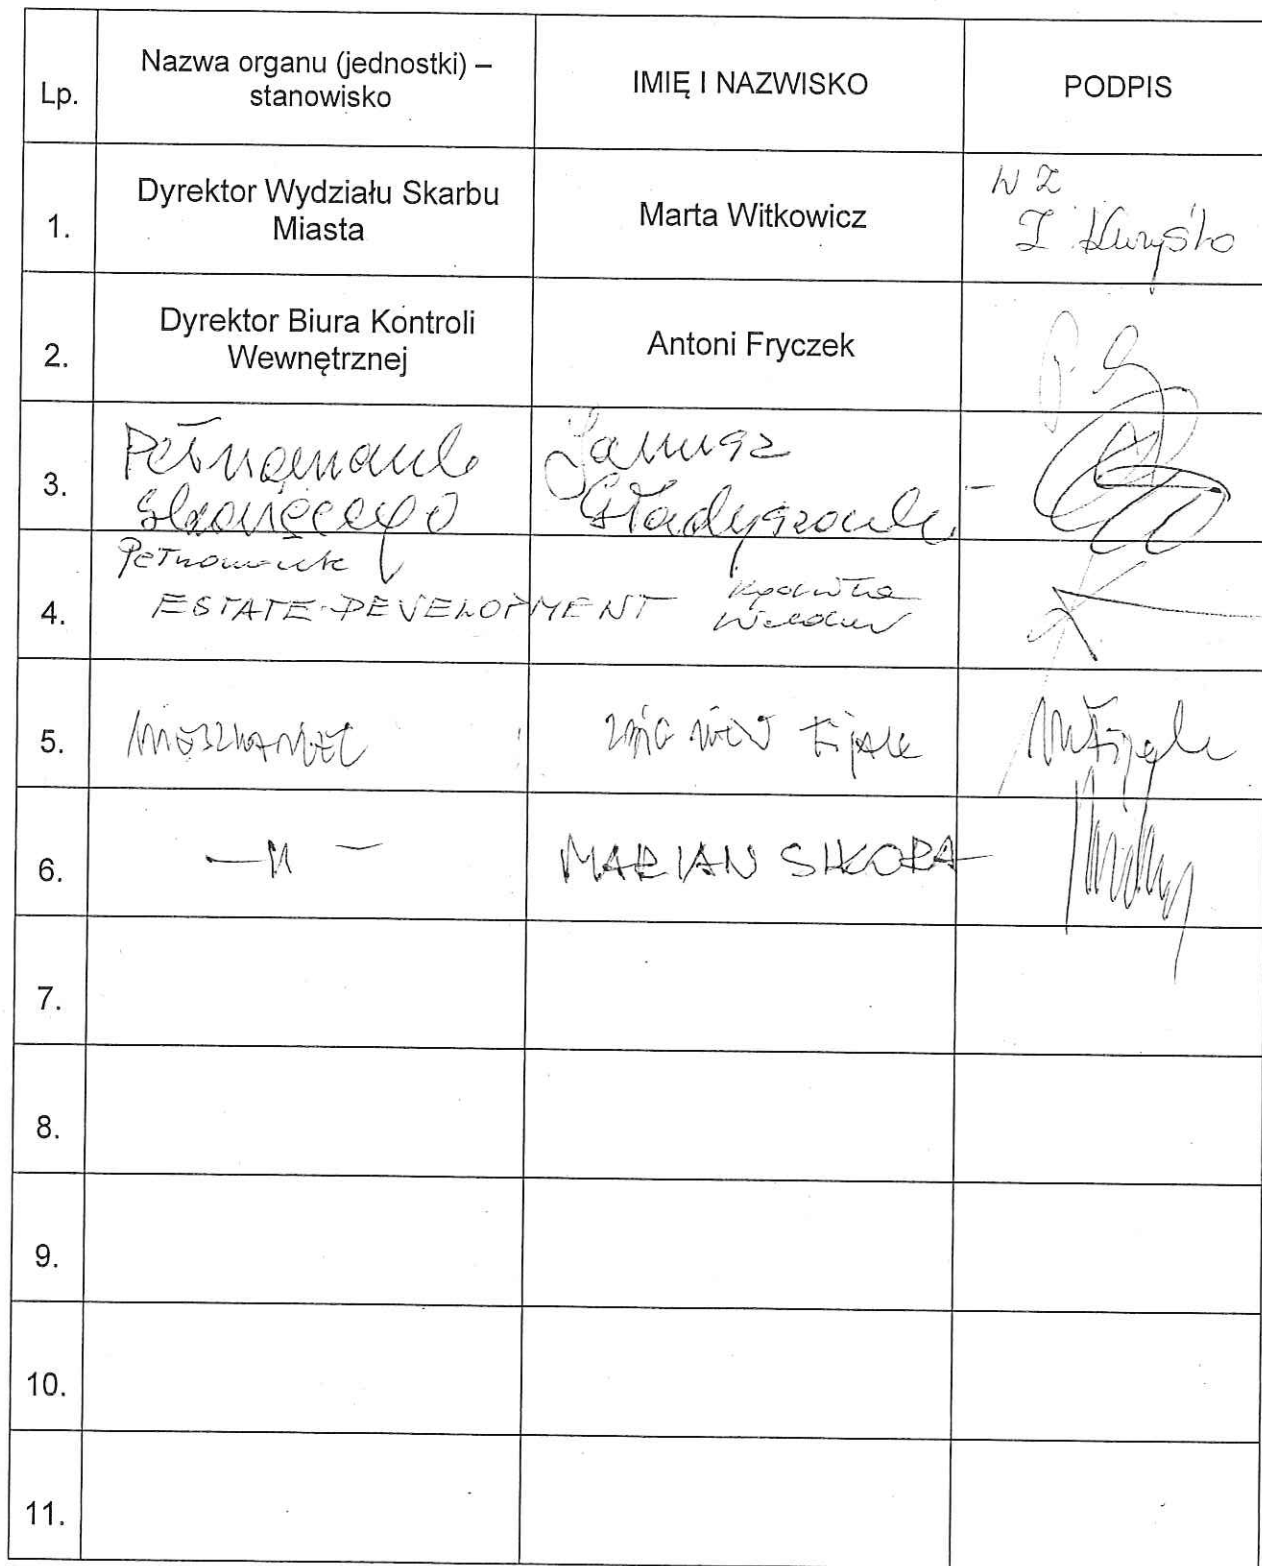 Lp.
Nazwa organu (jednostki) –
stanowisko
IMIĘ I NAZWISKO
PODPIS
1.
Dyrektor Wydziału Skarbu
Miasta
Marta Witkowicz
W Z
2.
Dyrektor Biura Kontroli
Wewnętrznej
Antoni Fryczek
3.
Pełnomocnik
skarżącego
Janusz
Gładyszowski
4.
Pełnomocnik
ESTATE-DEVELOPMENT
5.
MIESZKANIEC
6.
— " —
MARIAN SIKORA
7.
8.
9.
10.
11.